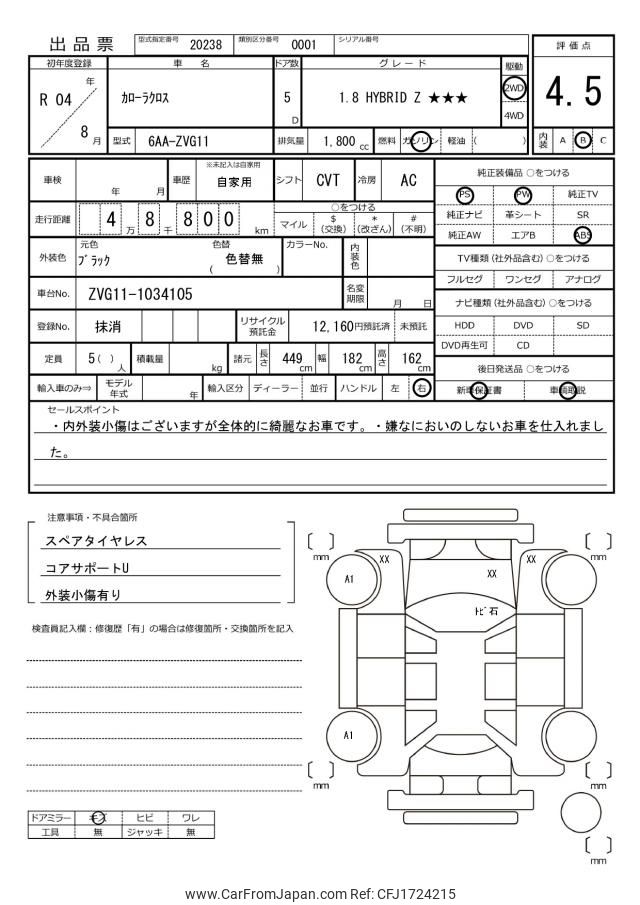 出品票 型式指定番号 20238 類別区分番号 0001 シリアル番号
評価点
4.5
内装 A B C
初年度登録 車名 ドア数 グレード 駆動
R 04 年 8 月 カローラクロス 5 D 1.8 HYBRID Z ★★★ 2WD
4WD
型式 6AA-ZVG11 排気量 1,800 cc 燃料 ガソリン 軽油 ( )
車検 年 月 車歴 ※未記入は自家用 自家用 シフト CVT 冷房 AC
走行距離 4 万 8 千 8 0 0 km
○をつける
マイル $(交換) *(改ざん) #(不明)
外装色 元色 ブラック 色替 ( 色替無 ) カラーNo. 内装色
車台No. ZVG11-1034105 名変期限 月 日
登録No. 抹消 リサイクル預託金 12,160円預託済 未預託
定員 5( ) 人 積載量 kg 諸元 長さ 449 cm 幅 182 cm 高さ 162 cm
輸入車のみ⇒ モデル年式 年 輸入区分 ディーラー 並行 ハンドル 左 右
純正装備品 ○をつける
PS PW 純正TV
純正ナビ 革シート SR
純正AW エアB ABS
TV種類(社外品含む) ○をつける
フルセグ ワンセグ アナログ
ナビ種類(社外品含む) ○をつける
HDD DVD SD
DVD再生可 CD
後日発送品 ○をつける
新車保証書 車輌取説
セールスポイント
・内外装小傷はございますが全体的に綺麗なお車です。・嫌なにおいのしないお車を仕入れまし
た。
注意事項・不具合箇所
スペアタイヤレス
コアサポートU
外装小傷有り
検査員記入欄:修復歴「有」の場合は修復箇所・交換箇所を記入
mm
mm
XX
XX
XX
A1
トビ石
A1
mm
mm
mm
ドアミラー キズ ヒビ ワレ
工具 無 ジャッキ 無
www.CarFromJapan.com Ref: CFJ1724215